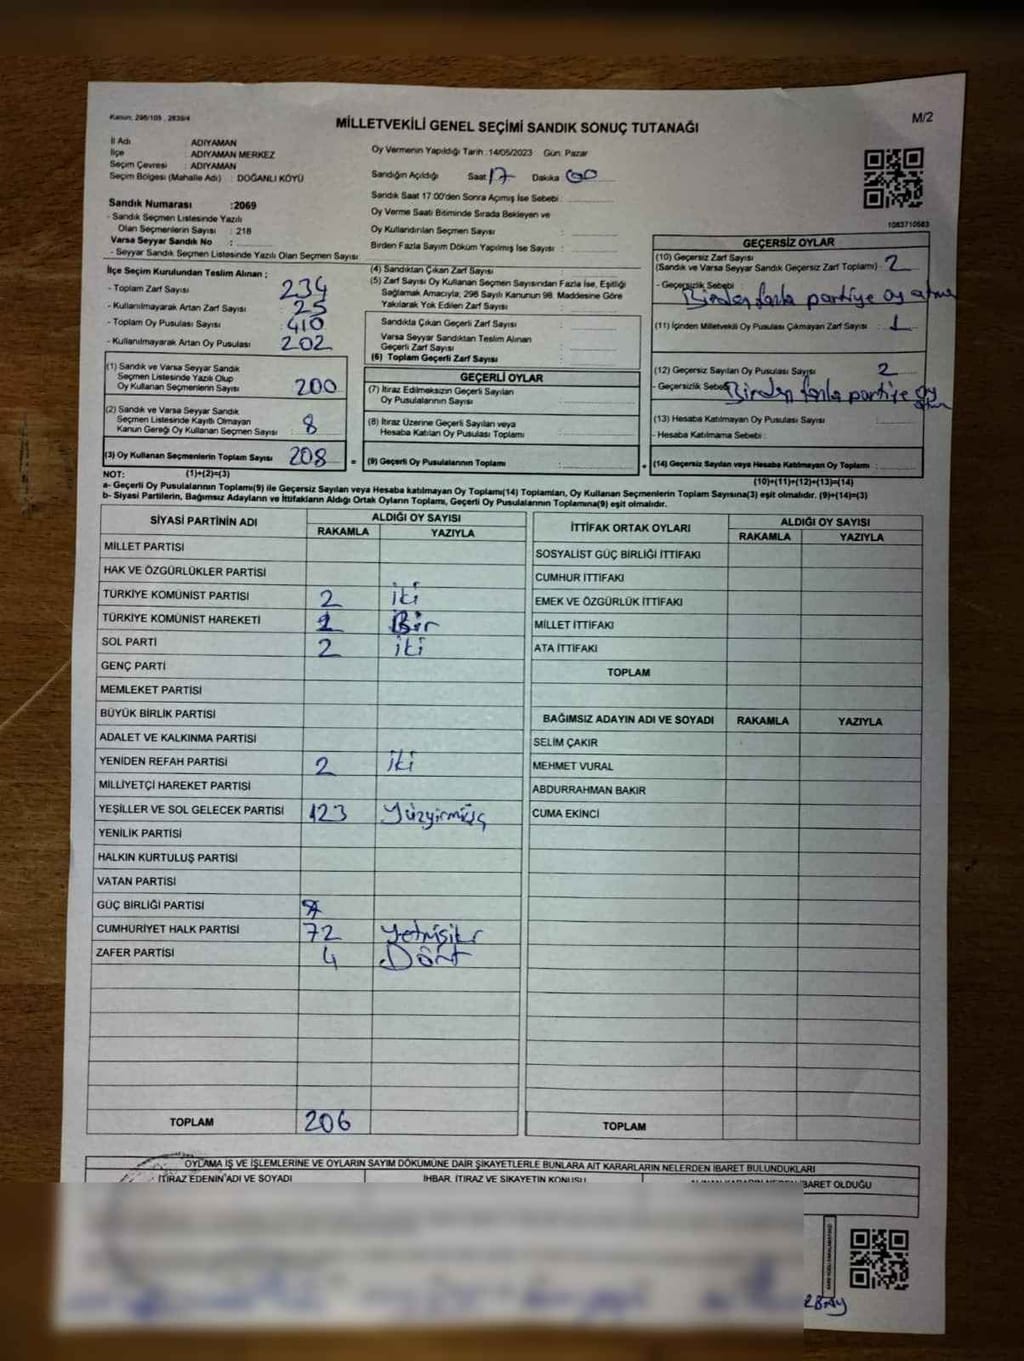 Kanun: 298/105 , 2839/4
MİLLETVEKİLİ GENEL SEÇİMİ SANDIK SONUÇ TUTANAĞI
M/2
İl Adı : ADIYAMAN
İlçe : ADIYAMAN MERKEZ
Seçim Çevresi : ADIYAMAN
Seçim Bölgesi (Mahalle Adı) : DOĞANLI KÖYÜ
Oy Vermenin Yapıldığı Tarih :14/05/2023 Gün: Pazar
Sandığın Açıldığı Saat 17 Dakika 00
Sandık Saat 17:00'den Sonra Açımış İse Sebebi :
Oy Verme Saati Bitiminde Sırada Bekleyen ve
Oy Kullandırılan Seçmen Sayısı :
Birden Fazla Sayım Döküm Yapılmış İse Sayısı :
Sandık Numarası :2069
- Sandık Seçmen Listesinde Yazılı
Olan Seçmenlerin Sayısı : 218
Varsa Seyyar Sandık No :
- Seyyar Sandık Seçmen Listesinde Yazılı Olan Seçmen Sayısı :
1083710583
İlçe Seçim Kurulundan Teslim Alınan ;
- Toplam Zarf Sayısı 234
- Kullanılmayarak Artan Zarf Sayısı 25
- Toplam Oy Pusulası Sayısı 410
- Kullanılmayarak Artan Oy Pusulası 202
(1) Sandık ve Varsa Seyyar Sandık
Seçmen Listesinde Yazılı Olup
Oy Kullanan Seçmenlerin Sayısı 200
(2) Sandık ve Varsa Seyyar Sandık
Seçmen Listesinde Kayıtlı Olmayan
Kanun Gereği Oy Kullanan Seçmen Sayısı 8
(3) Oy Kullanan Seçmenlerin Toplam Sayısı 208
(4) Sandıktan Çıkan Zarf Sayısı :
(5) Zarf Sayısı Oy Kullanan Seçmen Sayısından Fazla İse, Eşitliği
Sağlamak Amacıyla, 298 Sayılı Kanunun 98. Maddesine Göre
Yakılarak Yok Edilen Zarf Sayısı :
Sandıkta Çıkan Geçerli Zarf Sayısı :
Varsa Seyyar Sandıktan Teslim Alınan
Geçerli Zarf Sayısı :
(6) Toplam Geçerli Zarf Sayısı :
GEÇERLİ OYLAR
(7) İtiraz Edilmeksizin Geçerli Sayılan
Oy Pusulalarının Sayısı :
(8) İtiraz Üzerine Geçerli Sayılan veya
Hesaba Katılan Oy Pusulası Toplamı :
= (9) Geçerli Oy Pusulalarının Toplamı :
GEÇERSİZ OYLAR
(10) Geçersiz Zarf Sayısı
(Sandık ve Varsa Seyyar Sandık Geçersiz Zarf Toplamı) 2
- Geçersizlik Sebebi : Birden fazla partiye oy atma
(11) İçinden Milletvekili Oy Pusulası Çıkmayan Zarf Sayısı : 1
(12) Geçersiz Sayılan Oy Pusulası Sayısı 2
- Geçersizlik Sebebi Birden fazla partiye oy
(13) Hesaba Katılmayan Oy Pusulası Sayısı :
- Hesaba Katılmama Sebebi :
+ (14) Geçersiz Sayılan veya Hesaba Katılmayan Oy Toplamı :
NOT: (1)+(2)=(3)
(10)+(11)+(12)+(13)=(14)
a- Geçerli Oy Pusulalarının Toplamı(9) ile Geçersiz Sayılan veya Hesaba katılmayan Oy Toplamı(14) Toplamları, Oy Kullanan Seçmenlerin Toplam Sayısına(3) eşit olmalıdır. (9)+(14)=(3)
b- Siyasi Partilerin, Bağımsız Adayların ve İttifakların Aldığı Ortak Oyların Toplamı, Geçerli Oy Pusulalarının Toplamına(9) eşit olmalıdır.
SİYASİ PARTİNİN ADI ALDIĞI OY SAYISI
RAKAMLA YAZIYLA
MİLLET PARTİSİ
HAK VE ÖZGÜRLÜKLER PARTİSİ
TÜRKİYE KOMÜNİST PARTİSİ 2 iki
TÜRKİYE KOMÜNİST HAREKETİ 1 Bir
SOL PARTİ 2 iki
GENÇ PARTİ
MEMLEKET PARTİSİ
BÜYÜK BİRLİK PARTİSİ
ADALET VE KALKINMA PARTİSİ
YENİDEN REFAH PARTİSİ 2 iki
MİLLİYETÇİ HAREKET PARTİSİ
YEŞİLLER VE SOL GELECEK PARTİSİ 123 Yüzyirmiüç
YENİLİK PARTİSİ
HALKIN KURTULUŞ PARTİSİ
VATAN PARTİSİ
GÜÇ BİRLİĞİ PARTİSİ
CUMHURİYET HALK PARTİSİ 72 Yetmişiki
ZAFER PARTİSİ 4 Dört
TOPLAM 206
İTTİFAK ORTAK OYLARI ALDIĞI OY SAYISI
RAKAMLA YAZIYLA
SOSYALİST GÜÇ BİRLİĞİ İTTİFAKI
CUMHUR İTTİFAKI
EMEK VE ÖZGÜRLÜK İTTİFAKI
MİLLET İTTİFAKI
ATA İTTİFAKI
TOPLAM
BAĞIMSIZ ADAYIN ADI VE SOYADI RAKAMLA YAZIYLA
SELİM ÇAKIR
MEHMET VURAL
ABDURRAHMAN BAKIR
CUMA EKİNCİ
TOPLAM
OYLAMA İŞ VE İŞLEMLERİNE VE OYLARIN SAYIM DÖKÜMÜNE DAİR ŞİKAYETLERLE BUNLARA AİT KARARLARIN NELERDEN İBARET BULUNDUKLARI
İTİRAZ EDENİN ADI VE SOYADI İHBAR, İTİRAZ VE ŞİKAYETİN KONUSU İBARET OLDUĞU